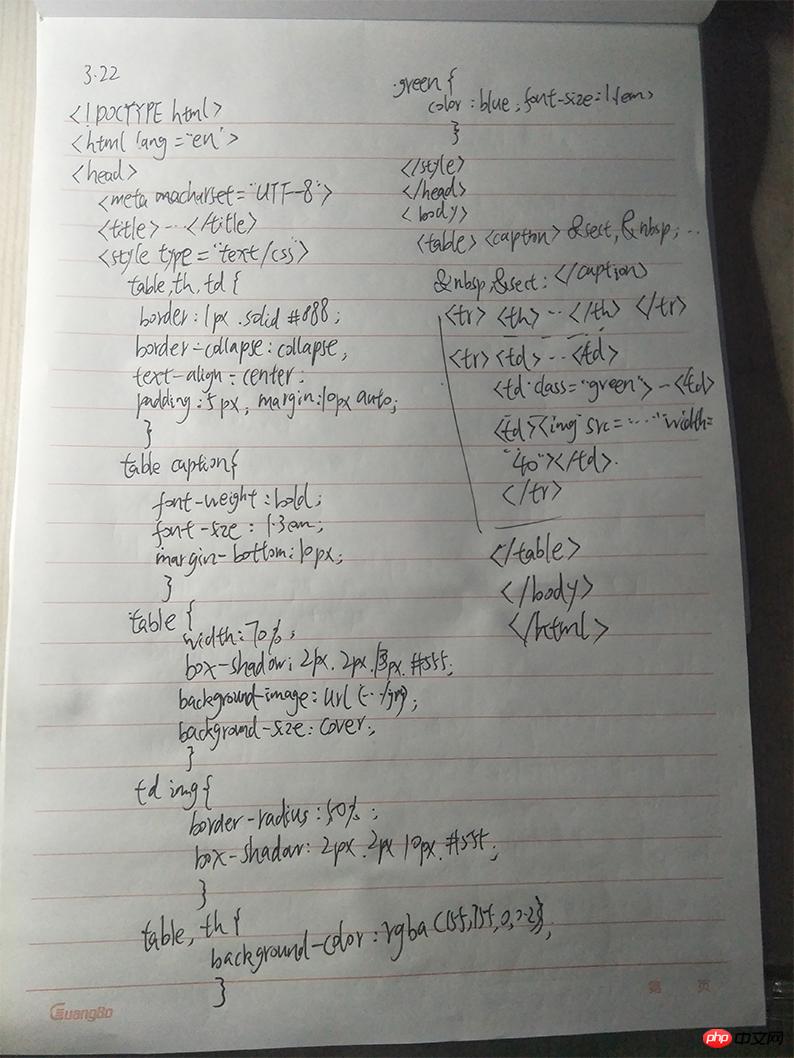 3.22
<!DOCTYPE html>
<html lang="en">
<head>
<meta charset="UTF-8">
<title>...</title>
<style type="text/css">
table,th,td{
border:1px.solid #888;
border-collapse:collapse;
text-align:center;
padding:5px; margin:10px auto;
}
table caption{
font-weight:bold;
font-size:1.3em;
margin-bottom:10px;
}
table {
width:70%;
box-shadow:2px.2px.13px.#555;
background-image:url(.../jpg);
background-size:cover;
}
td img{
border-radius:50%;
box-shadow:2px.2px 10px.#555;
}
table,th{
background-color:rgba(155,755,0,0.2);
}
.green{
color:blue;font-size:1.5em;
}
</style>
</head>
<body>
<table><caption>&sect;&nbsp;...
&nbsp;&sect;</caption>
<tr><th>...</th></tr>
<tr><td>...<td>
<td class="green">...<td>
<td><img src="..." width=
"40"></td>.
</tr>
</table>
</body>
</html>
GuangBo
第 页
php中文网